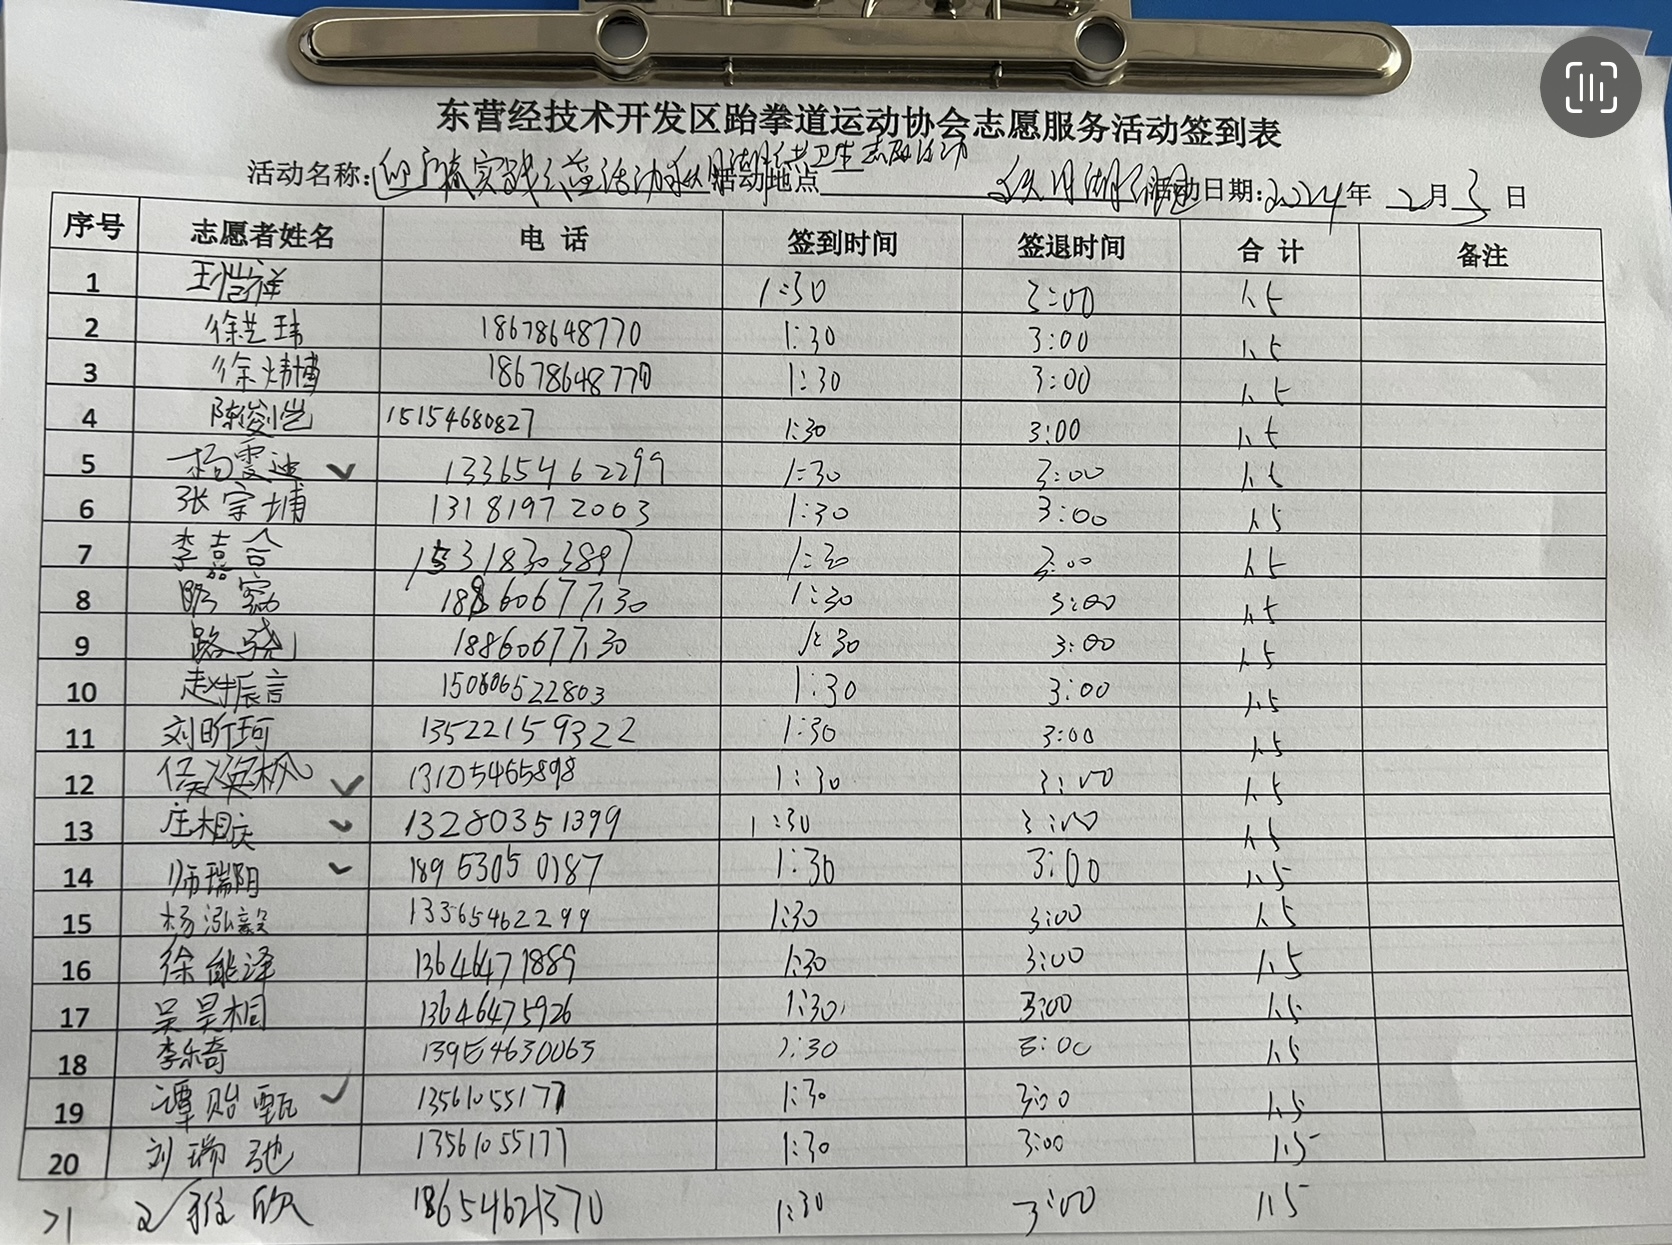 东营经技术开发区跆拳道运动协会志愿服务活动签到表
活动名称: 实践公益活动 卫生志愿活动 活动地点 活动日期: 2024 年 2 月 3 日
序号 志愿者姓名 电话 签到时间 签退时间 合计 备注
1 王恺祥 1:30 3:00 1.5
2 徐艺玮 18678648770 1:30 3:00 1.5
3 徐炜博 18678648770 1:30 3:00 1.5
4 陈俊恺 15154680827 1:30 3:00 1.5
5 杨雯迪 13365462299 1:30 3:00 1.5
6 张宗埔 13181972003 1:30 3:00 1.5
7 李嘉合 15318303897 1:30 3:00 1.5
8 18860677130 1:30 3:00 1.5
9 路骁 18860677130 1:30 3:00 1.5
10 赵振言 1:30 3:00 1.5
11 刘昕珂 13522159322 1:30 3:00 1.5
12 侯焕枫 13105465898 1:30 3:00 1.5
13 庄相庆 13280351399 1:30 3:00 1.5
14 师瑞阳 18953050187 1:30 3:00 1.5
15 杨泓毅 13365462299 1:30 3:00 1.5
16 徐能泽 13646471889 1:30 3:00 1.5
17 吴昊桐 13646475926 1:30 3:00 1.5
18 李乐奇 13954630063 1:30 3:00 1.5
19 谭贻甄 13561055177 1:30 3:00 1.5
20 刘瑞弛 13561055177 1:30 3:00 1.5
21 雅欣 18654621370 1:30 3:00 1.5